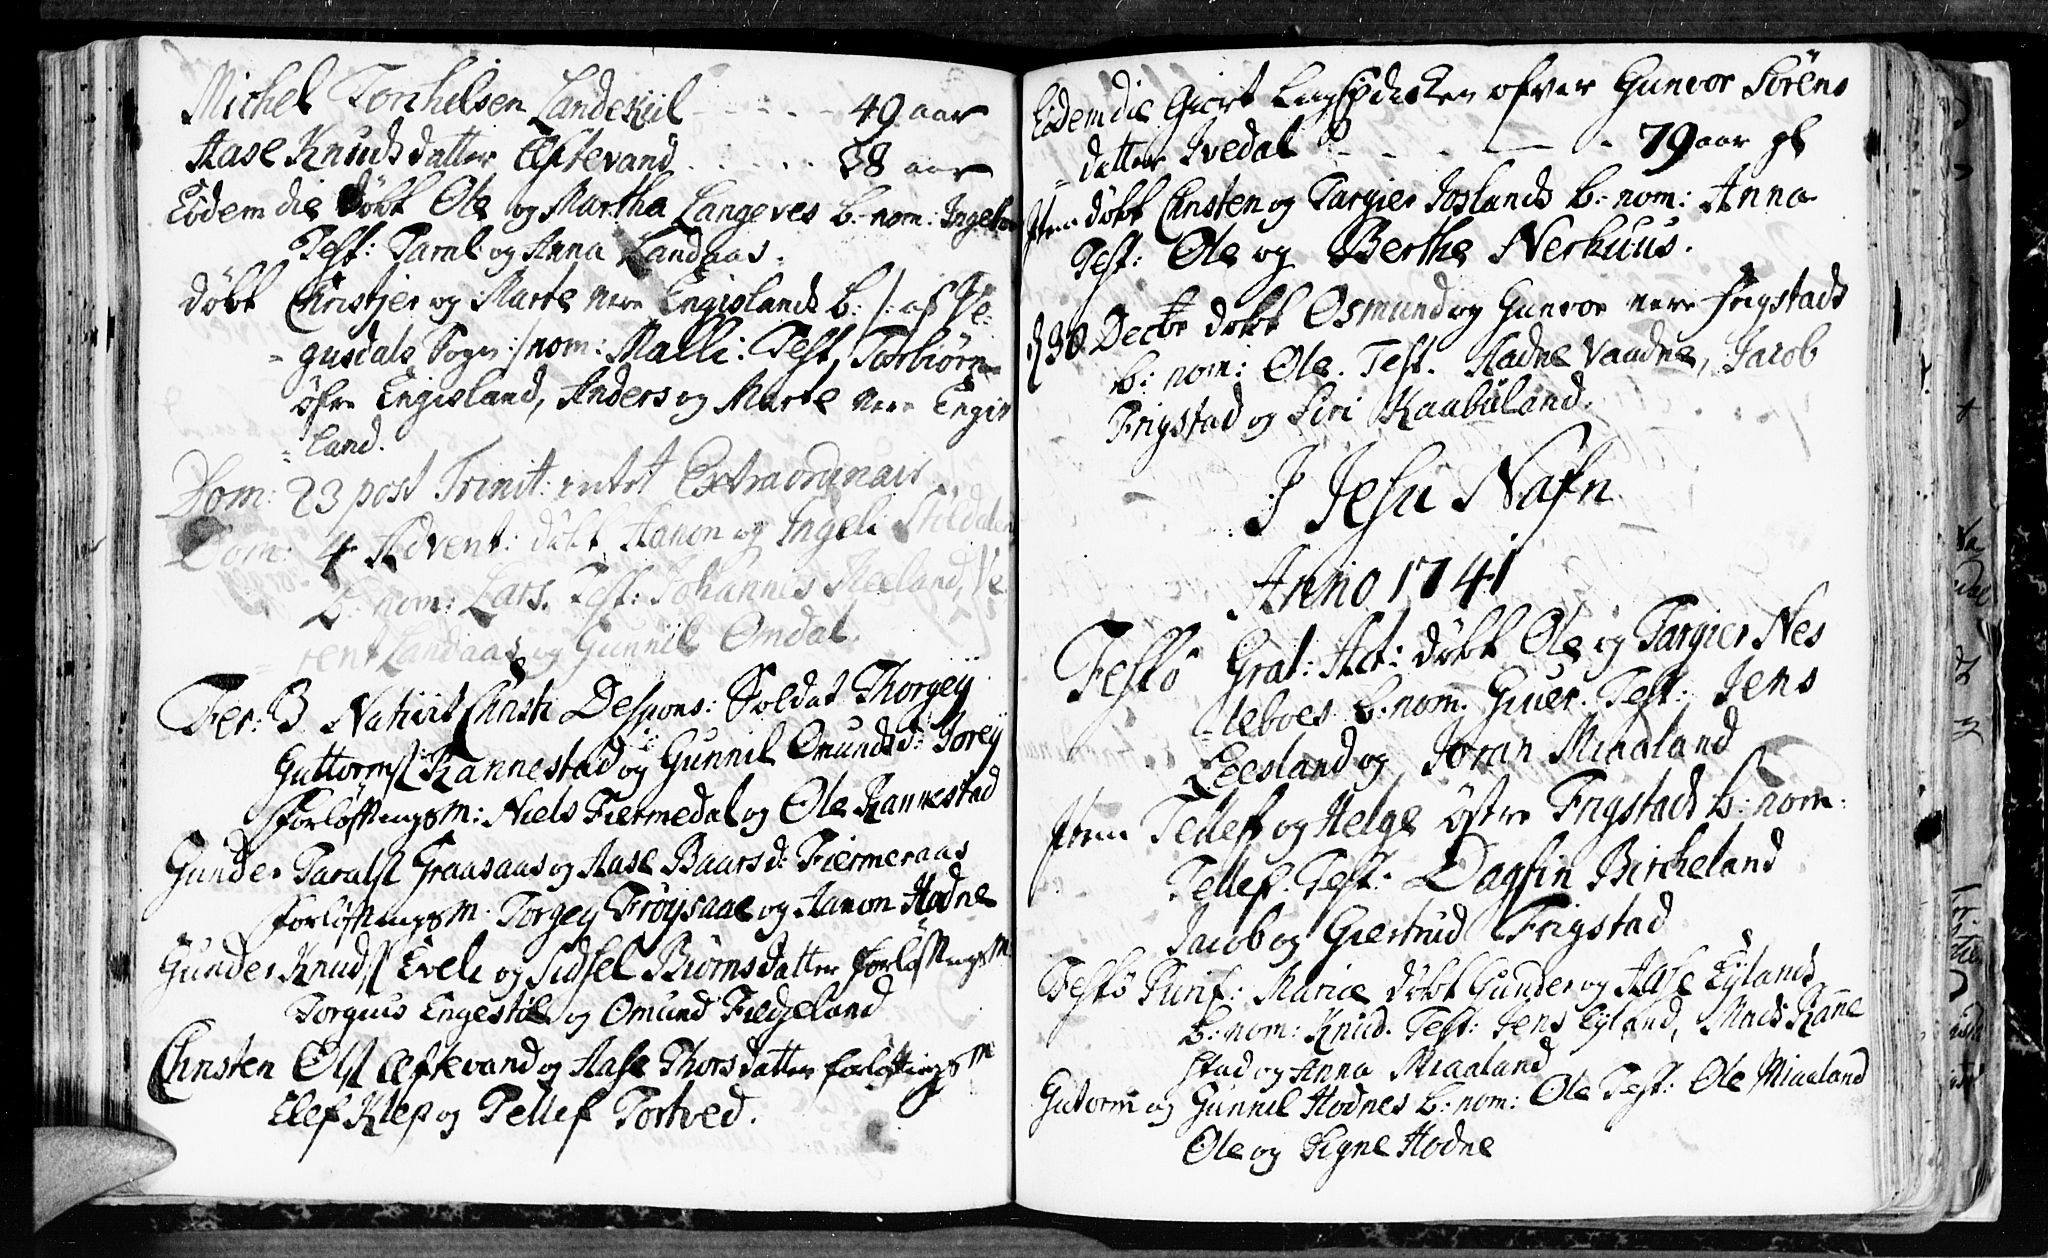 Michel Torchelsen Landekiil - - - - 49 aar
Aase Knuds datter Eftevand . . . . . 38 aar
Eodem die döbt Ole og Martha Langeves b: nom: Ingebor
Test: Taral og Anna Landaas.
döbt Christjer og Marte nere Engislands b: /: af Ve=
= gusdals Sogn :/ nom: Malli: Test, Torbiörn
öfre Engisland, Anders og Marte nere Engis
= land.
Dom: 23 post Trinit: intet Extraordinair
Dom: 4 Advent: döbt Aanon og Ingeli
b: nom: Lars. Test: Johannes Reeland, Ve
= rent Landaas og Gunnil Omdal.
Fer: 3 Nativit Christi Despons: Soldat Thorgej
Guttorms Kannestad og Gunnil Omundsd:
forløftnings M: Niels Fiermedal og Ole Kannestad
Gunder Taralss Graasaas og Aase Baarsd: Fiermeraas
forløftnings M: Torgey Frøysaae og Aanon Hodne
Gunder Knuds Eveli og Sidsel Biörnsdatter forløftnings M
Torgius Engestöl og Omund Fidjeland
Christen Ols Eftevand og Aase Thorsdatter forløftnings M
Elef Klep og Tellef Tortved.
Eodem die Giort ofver Gunvor Sörens
= datter Ivedal - - - - 79 aar gl
Item döbt Christen og Targier Joslands b: nom: Anna
Test: Ole og Berthe Nerhuus.
d 30 Decbr döbt Osmund og Gunvor nere Frigstads
b: nom: Ole. Test. Aadne Vaadne, Jacob
Frigstad og Siri Kaabuland.
I Jesu Nafn
Anno 1741
Festo Grat: Act: döbt Ole og Targier Nes
= leboes b: nom. Giuer. Test: Jens
Eeesland og Joran Miaaland
Item Tellef og Helge östre Frigstads b: nom:
Tellef. Test: Dagfin Bircheland
Jacob og Giertrud Frigstad
Festo Purif: Mariæ döbt Gunder og Aase Eylands
b: nom: Knud. Test: Jens Eyland, Mads Kanne
stad og Anna Miaaland
Gutorm og Gunnil Hodnes b: nom: Ole Test: Ole Miaaland
Ole og Signe Hodne